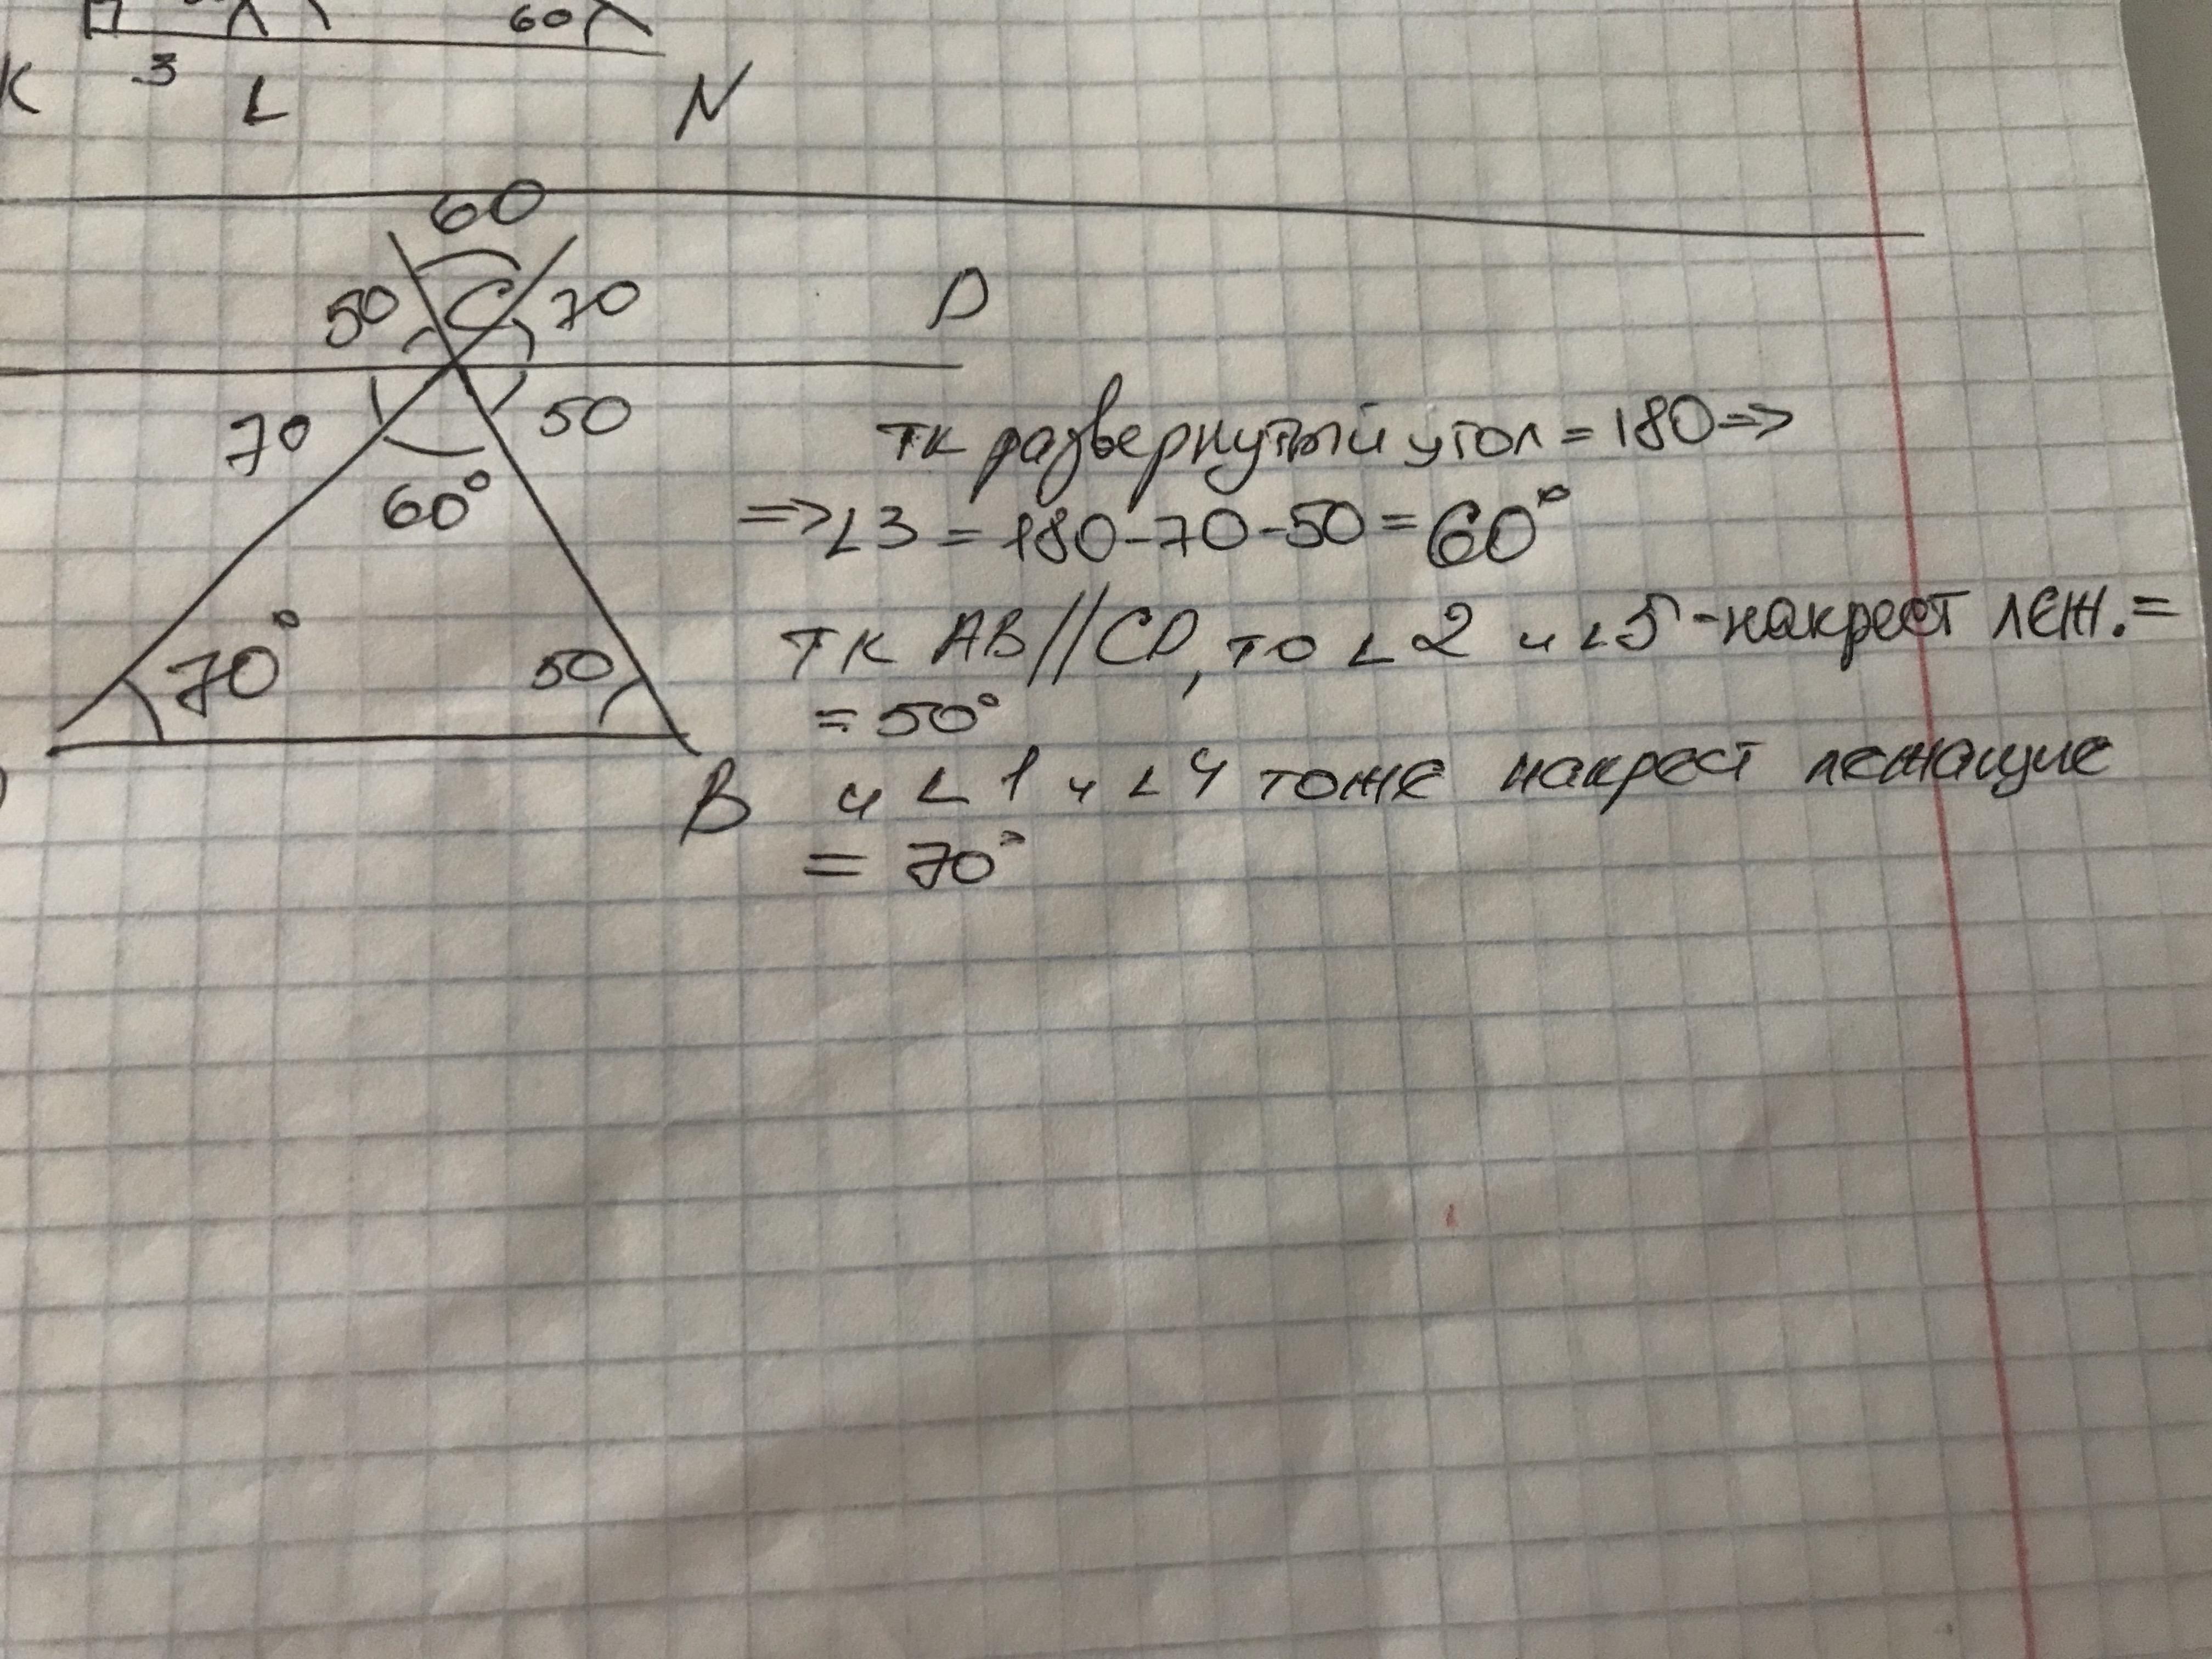 60
K 3 L N
60
50 C 70 D
70 50
60°
70° 50
B
тк развернутый угол = 180 =>
=> ∠3 = 180-70-50 = 60°
тк AB//CD, то ∠2 и ∠5 - накрест леж. =
= 50°
и ∠1 и ∠4 тоже накрест лежащие
= 70°